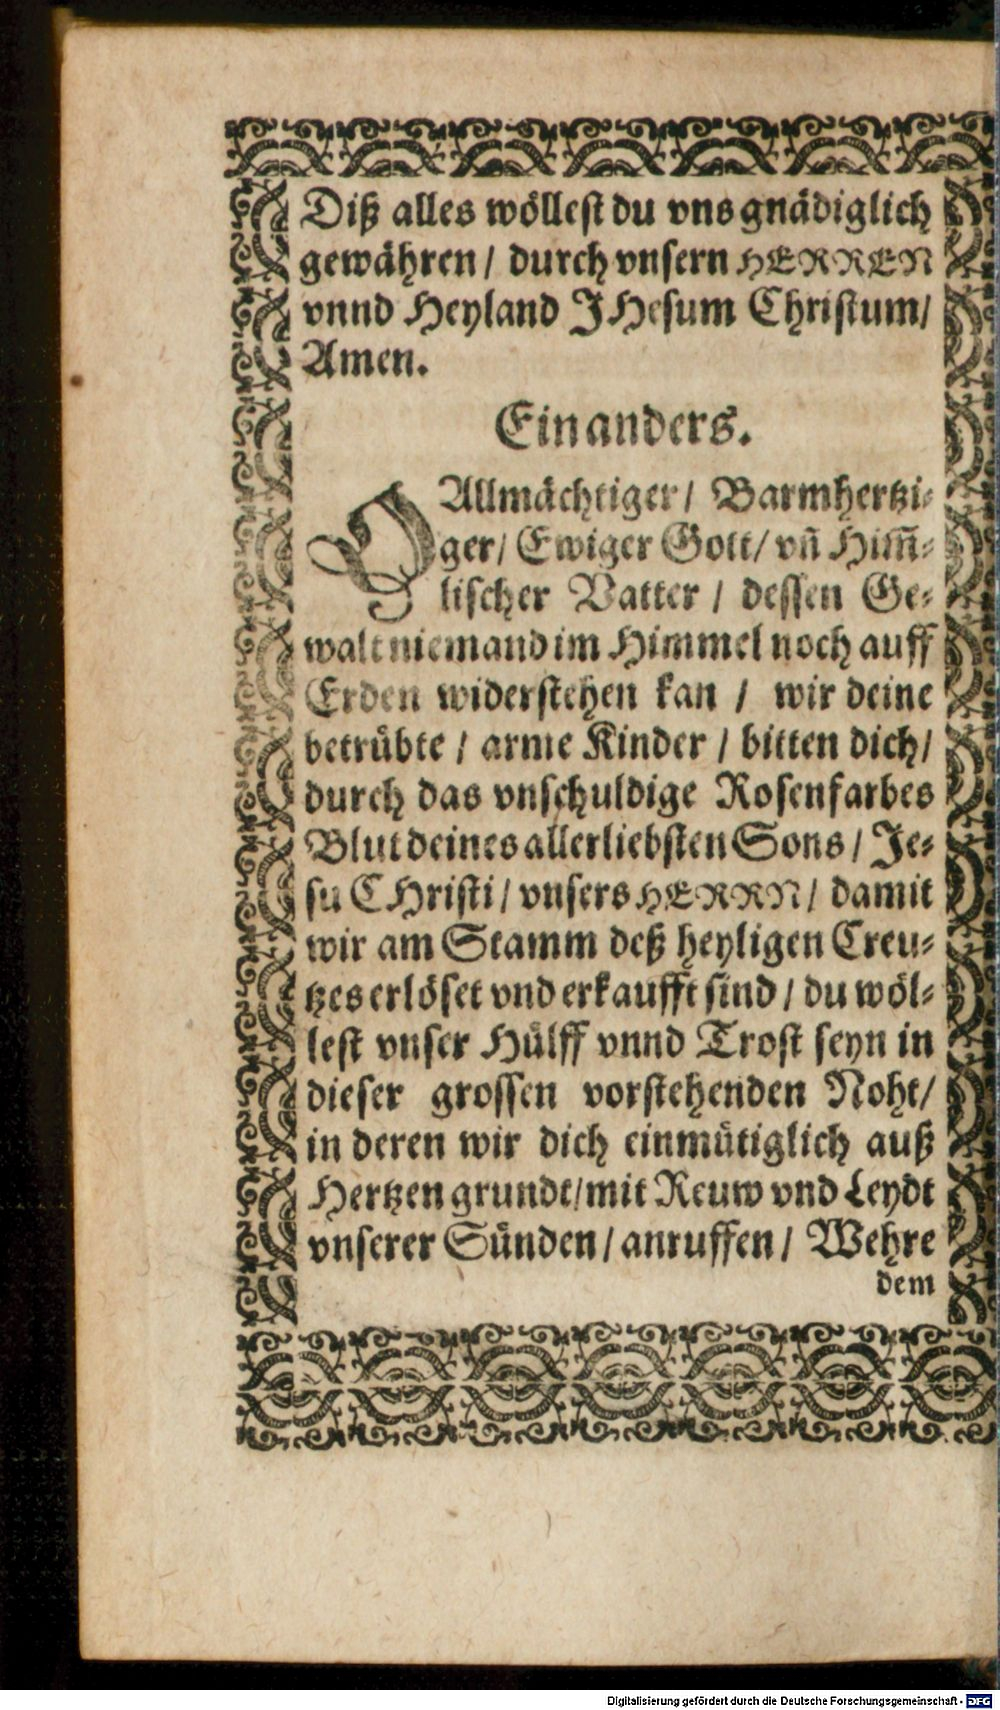 Diß alles wöllest du vns gnädiglich
gewähren / durch vnsern HERREN
vnnd Heyland JHesum Christum /
Amen.
Ein anders.
O Allmächtiger / Barmhertzi-
ger / Ewiger Gott / vñ Him̃-
lischer Vatter / dessen Ge-
walt niemand im Himmel noch auff
Erden widerstehen kan / wir deine
betrübte / arme Kinder / bitten dich /
durch das vnschuldige Rosenfarbes
Blut deines allerliebsten Sons / Je-
su CHristi / vnsers HERRN / damit
wir am Stamm deß heyligen Creu-
tzes erlöset vnd erkaufft sind / du wöl-
lest vnser Hülff vnnd Trost seyn in
dieser grossen vorstehenden Noht /
in deren wir dich einmütiglich auß
Hertzen grundt / mit Reuw vnd Leydt
vnserer Sünden / anruffen / Wehre
dem
Digitalisierung gefördert durch die Deutsche Forschungsgemeinschaft - DFG